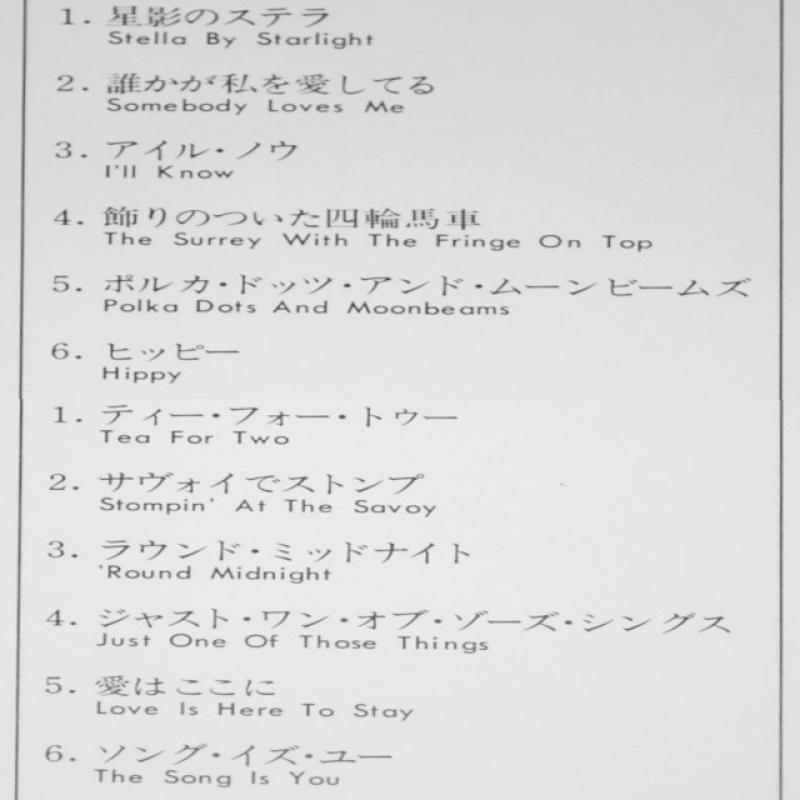 1. 星影のステラ
Stella By Starlight
2. 誰かが私を愛してる
Somebody Loves Me
3. アイル・ノウ
I'll Know
4. 飾りのついた四輪馬車
The Surrey With The Fringe On Top
5. ポルカ・ドッツ・アンド・ムーンビームズ
Polka Dots And Moonbeams
6. ヒッピー
Hippy
1. ティー・フォー・トゥー
Tea For Two
2. サヴォイでストンプ
Stompin' At The Savoy
3. ラウンド・ミッドナイト
'Round Midnight
4. ジャスト・ワン・オブ・ゾーズ・シングス
Just One Of Those Things
5. 愛はここに
Love Is Here To Stay
6. ソング・イズ・ユー
The Song Is You